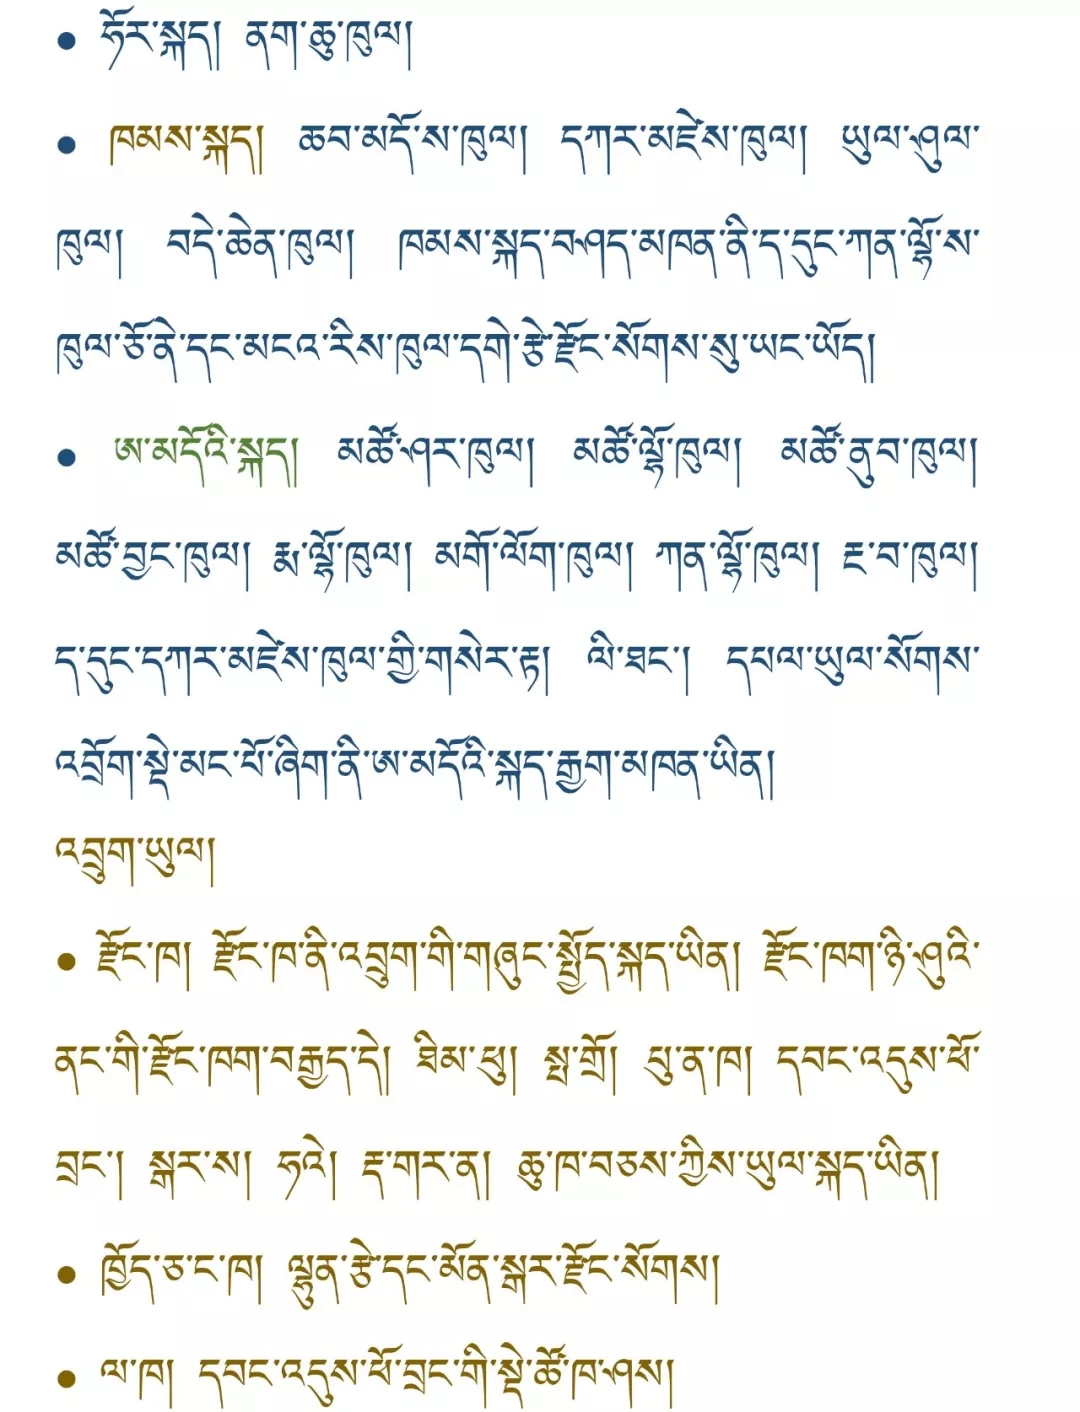 • ཧོར་སྐད། ནག་ཆུ་ཁུལ།
• ཁམས་སྐད། ཆབ་མདོ་ས་ཁུལ། དཀར་མཛེས་ཁུལ། ཡུལ་ཤུལ་
ཁུལ། བདེ་ཆེན་ཁུལ། ཁམས་སྐད་བཤད་མཁན་ནི་ད་དུང་ཀན་ལྷོ་ས་
ཁུལ་ཅོ་ནེ་དང་མངའ་རིས་ཁུལ་དགེ་རྩེ་རྫོང་སོགས་སུ་ཡང་ཡོད།
• ཨ་མདོའི་སྐད། མཚོ་ཤར་ཁུལ། མཚོ་ལྷོ་ཁུལ། མཚོ་ནུབ་ཁུལ།
མཚོ་བྱང་ཁུལ། རྨ་ལྷོ་ཁུལ། མགོ་ལོག་ཁུལ། ཀན་ལྷོ་ཁུལ། རྔ་བ་ཁུལ།
ད་དུང་དཀར་མཛེས་ཁུལ་གྱི་གསེར་རྟ། ལི་ཐང་། དཔལ་ཡུལ་སོགས་
འབྲོག་སྡེ་མང་པོ་ཞིག་ནི་ཨ་མདོའི་སྐད་རྒྱག་མཁན་ཡིན།
འབྲུག་ཡུལ།
• རྫོང་ཁ། རྫོང་ཁ་ནི་འབྲུག་གི་གཞུང་སྤྱོད་སྐད་ཡིན། རྫོང་ཁག་ཉི་ཤུའི་
ནང་གི་རྫོང་ཁག་བརྒྱད་དེ། ཐིམ་ཕུ། སྤ་གྲོ། པུ་ན་ཁ། དབང་འདུས་ཕོ་
བྲང་། སྒར་ས། ཧའེ། རྡ་གར་ན། ཆུ་ཁ་བཅས་ཀྱིས་ཡུལ་སྐད་ཡིན།
• ཁྱོད་ཅ་ང་ཁ། ལྷུན་རྩེ་དང་མོན་སྒར་རྫོང་སོགས།
• ལ་ཁ། དབང་འདུས་ཕོ་བྲང་གི་སྡེ་ཚོ་ཁ་ཤས།